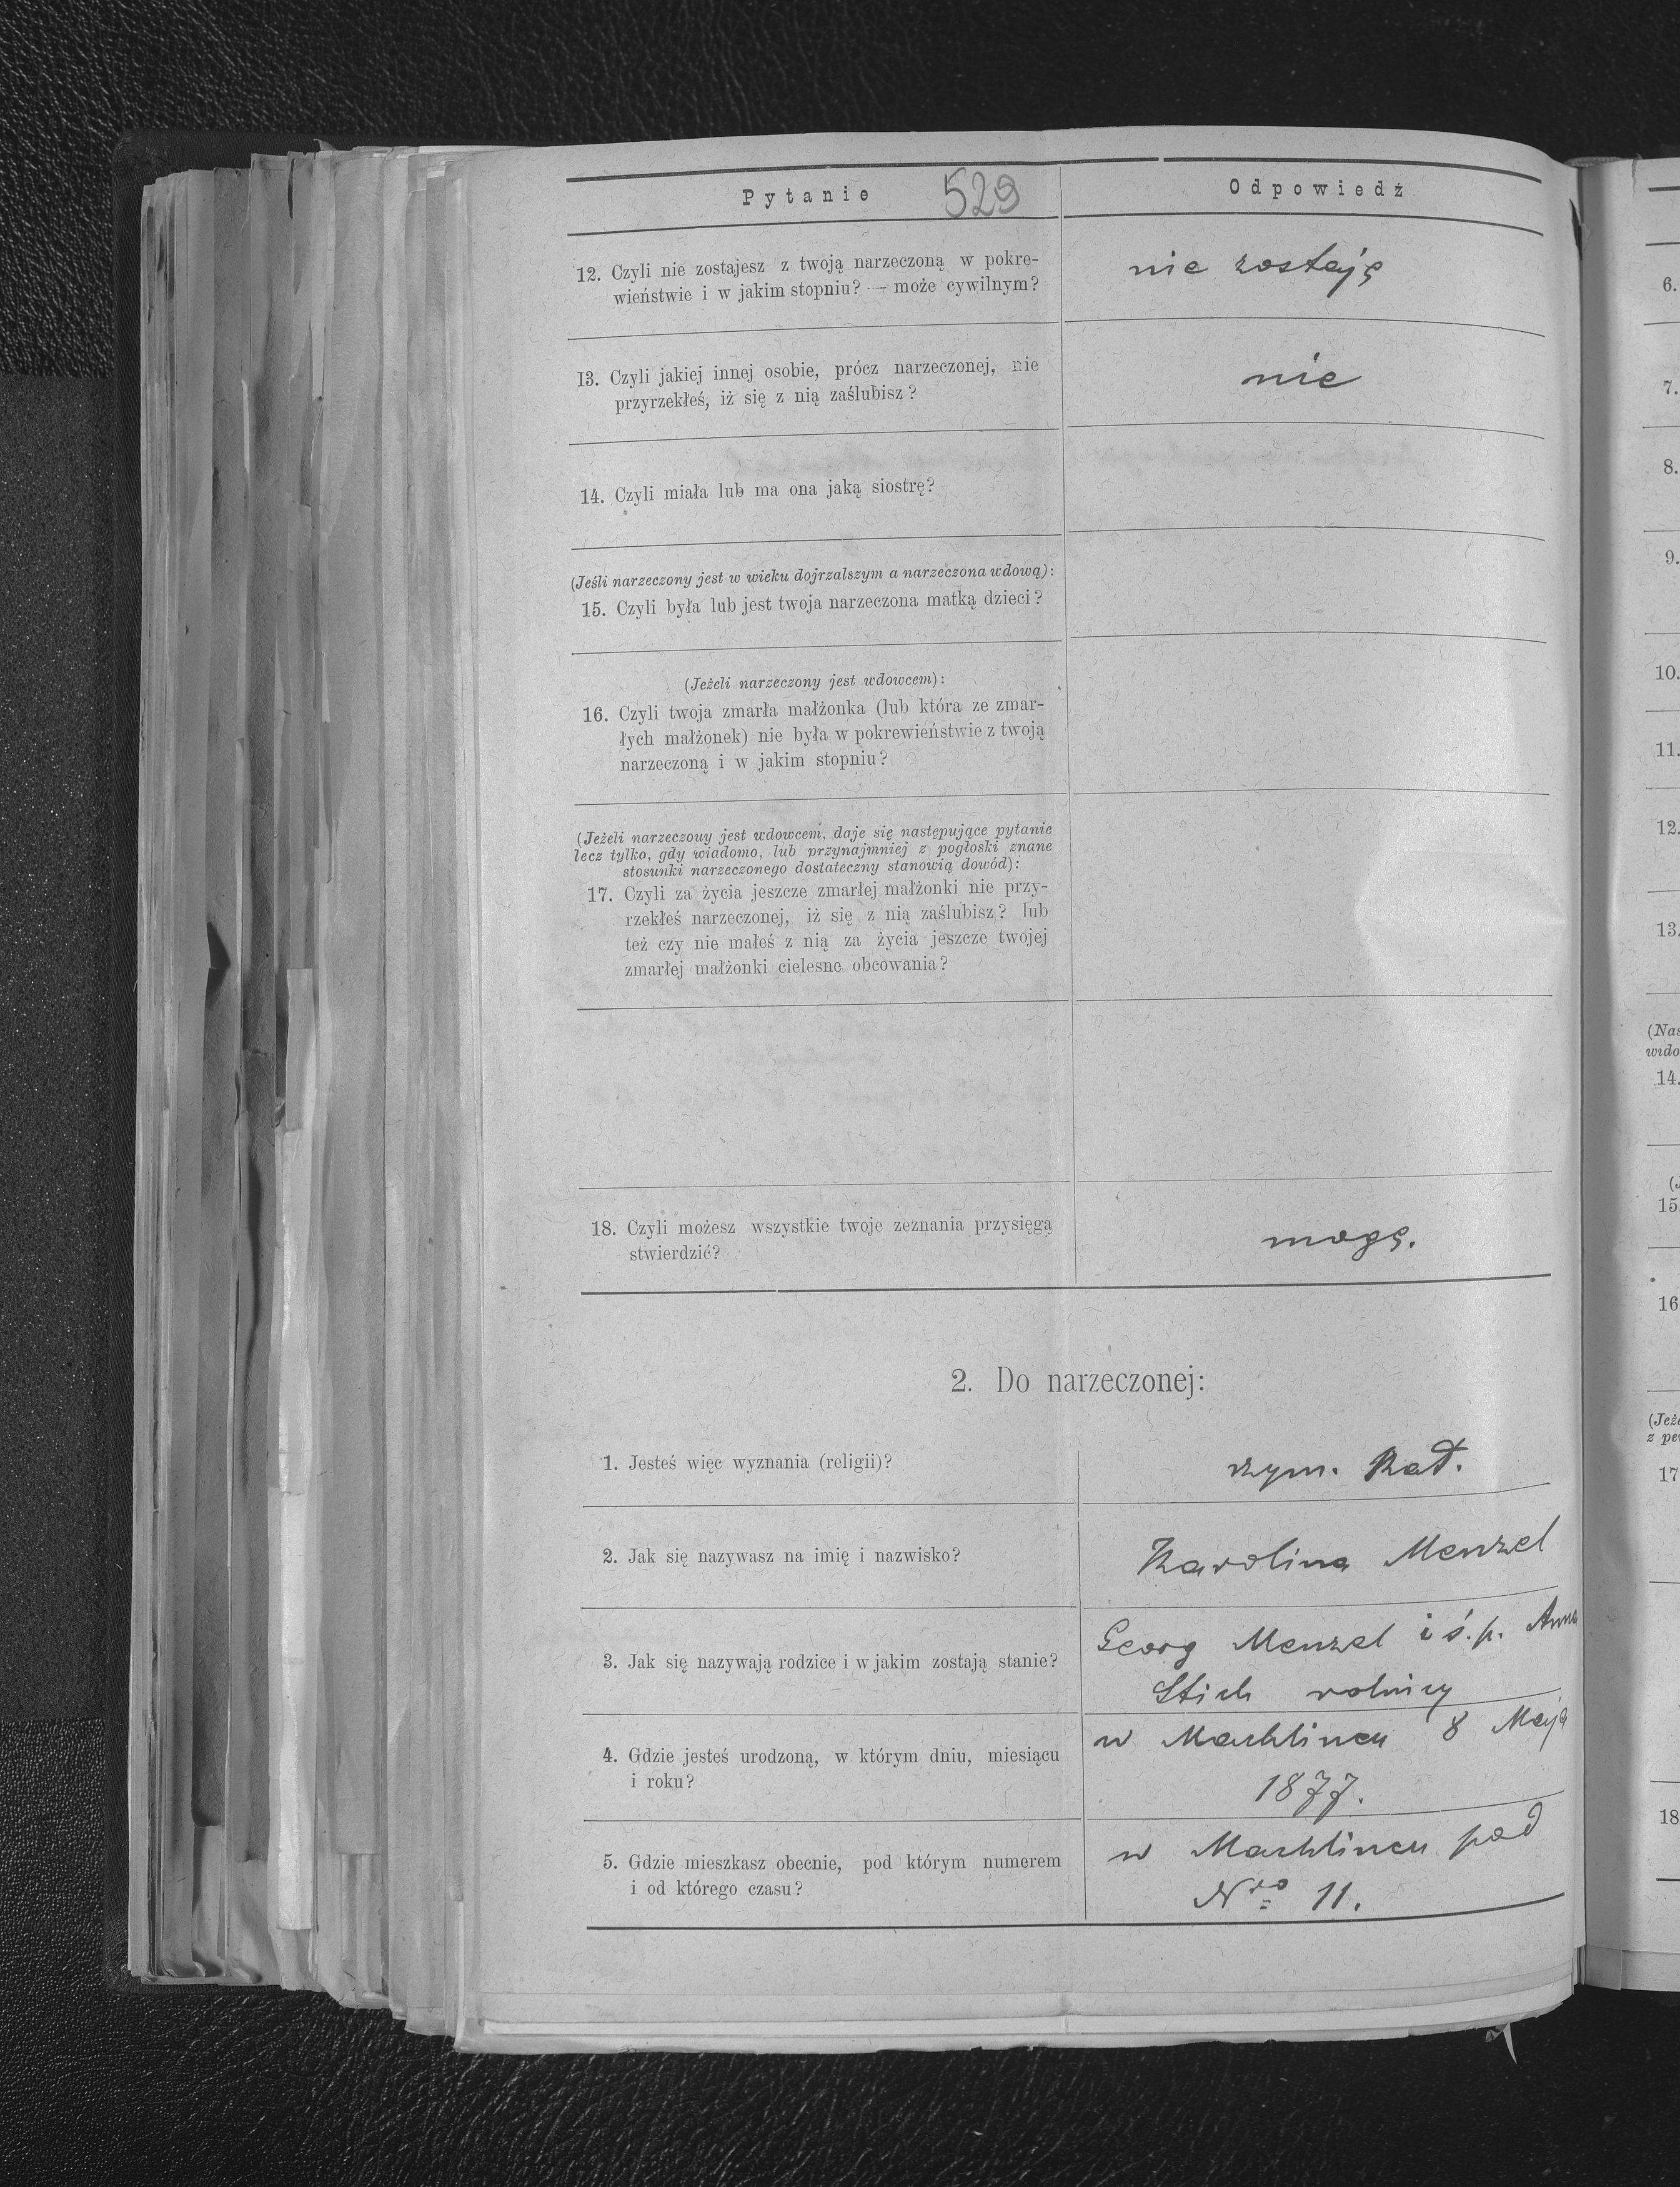 Pytanie 529 Odpowiedź
12. Czyli nie zostajesz z twoją narzeczoną w pokre-
wieństwie i w jakim stopniu? — może cywilnym?
nie zostaję
13. Czyli jakiej innej osobie, prócz narzeczonej, nie
przyrzekłeś, iż się z nią zaślubisz?
nie
14. Czyli miała lub ma ona jaką siostrę?
(Jeśli narzeczony jest w wieku dojrzalszym a narzeczona wdową):
15. Czyli była lub jest twoja narzeczona matką dzieci?
(Jeżeli narzeczony jest wdowcem):
16. Czyli twoja zmarła małżonka (lub która ze zmar-
łych małżonek) nie była w pokrewieństwie z twoją
narzeczoną i w jakim stopniu?
(Jeżeli narzeczouy jest wdowcem, daje się następujące pytanie
lecz tylko, gdy wiadomo, lub przynajmniej z pogłoski znane
stosunki narzeczonego dostateczny stanowią dowód):
17. Czyli za życia jeszcze zmarłej małżonki nie przy-
rzekłeś narzeczonej, iż się z nią zaślubisz? lub
też czy nie małeś z nią za życia jeszcze twojej
zmarłej małżonki cielesne obcowania?
18. Czyli możesz wszystkie twoje zeznania przysięgą
stwierdzić?
mogę.
2. Do narzeczonej:
1. Jesteś więc wyznania (religii)?
rzym. Kat.
2. Jak się nazywasz na imię i nazwisko?
Karolina Menzel
3. Jak się nazywają rodzice i w jakim zostają stanie?
Georg Menzel i ś. p. Anna
Stich rolnicy
4. Gdzie jesteś urodzoną, w którym dniu, miesiącu
i roku?
w Machlincu 8 Maja
1877.
5. Gdzie mieszkasz obecnie, pod którym numerem
i od którego czasu?
w Machlincu pod
Nro 11.
6.
7.
8.
9.
10.
11.
12.
13.
(Nas
wido
14.
(J
15.
16
(Jeże
z pe
17
18